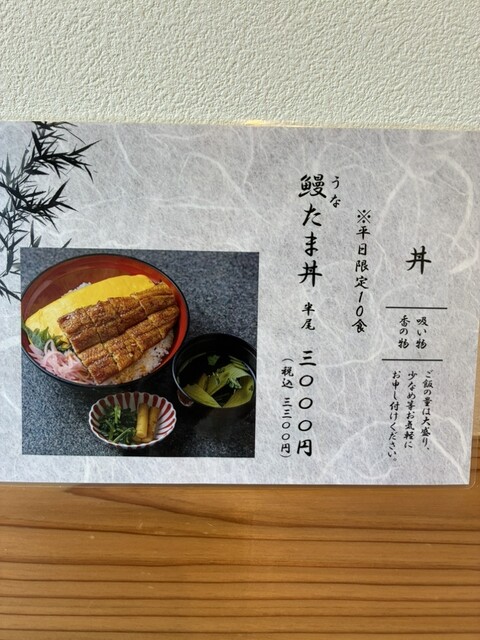 丼
吸い物
香の物
ご飯の量は大盛り、
少なめ等お気軽に
お申し付けください。
※平日限定10食
うな
鰻たま丼 半尾 三〇〇〇円
(税込 三三〇〇円)